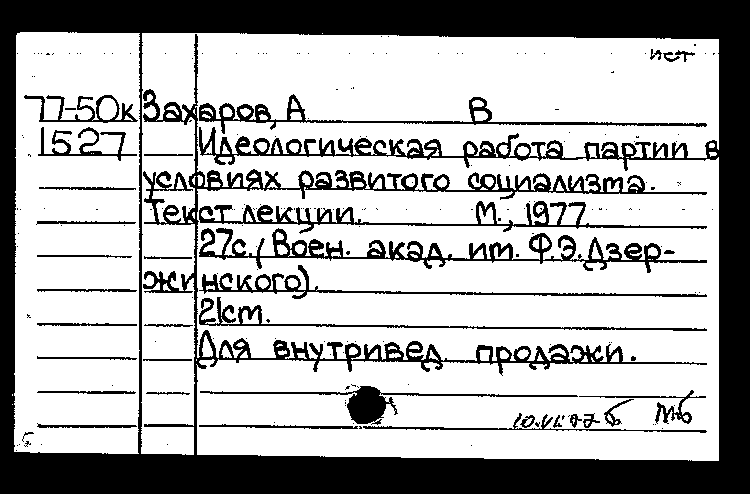 ист
77-50к Захаров, А В
1527 Идеологическая работа партии в
условиях развитого социализма.
Текст лекции. М., 1977.
27с. (Воен. акад. им. Ф.Э.Дзер-
жинского).
21ст.
Для внутривед продажи.